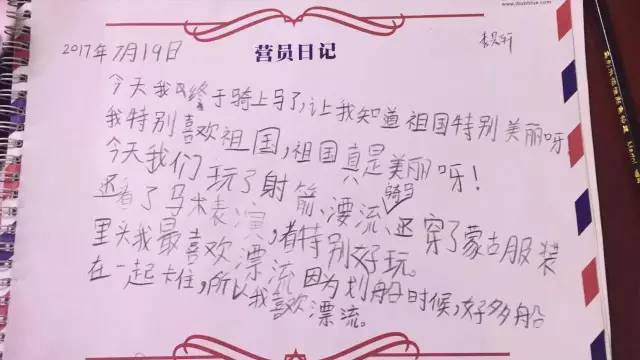 www.dushilvxe.com
2017年7月19日
营员日记
今天我终于骑上马了,让我知道祖国特别美丽呀
我特别喜欢祖国,祖国真是美丽呀!
今天我们玩了射箭、漂流、骑马
还看了马术表演,还穿了蒙古服装
里头我最喜欢漂流,看特别好玩。
在一起卡住,所以我喜欢漂流。因为划船时候,好多船